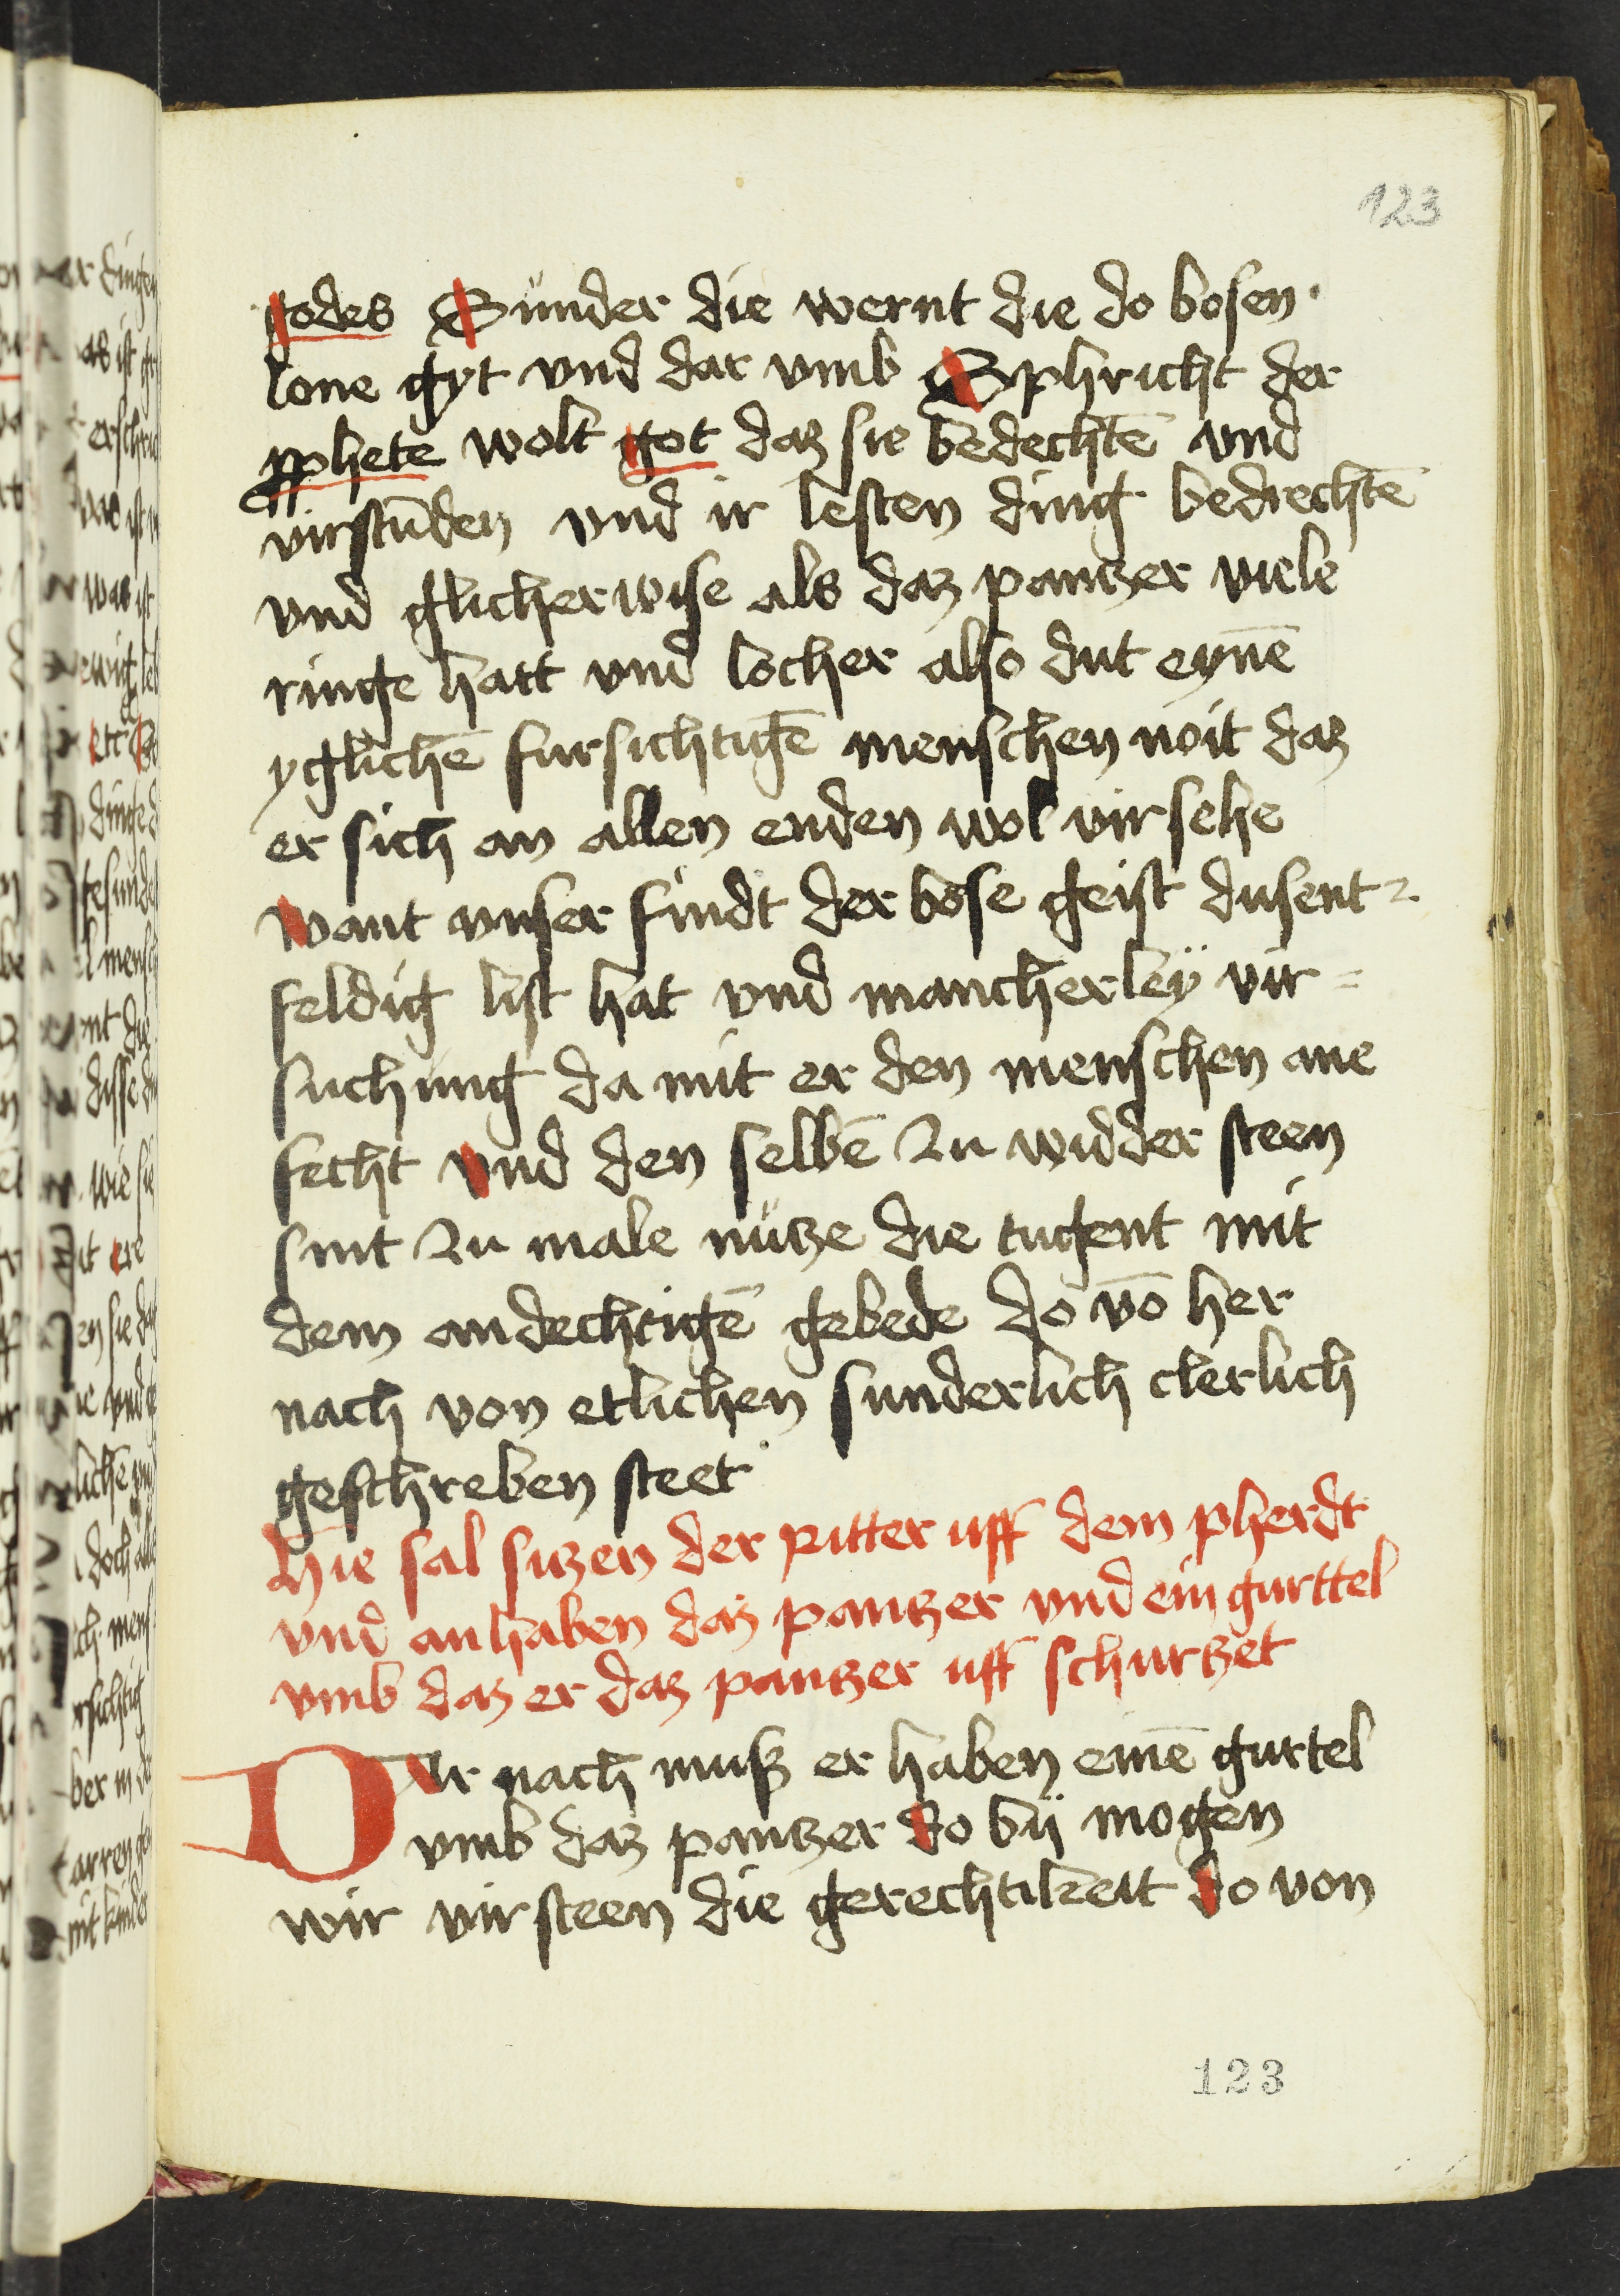 123
godes Sunder die wernt die do bosen
lone gyt vnd dar vmb Sphricht der
pphete wolt got daz sie bedechtē vnd
virstūden vnd ir lesten ding bedrechtē
vnd glicherwise als daz pantzer viele
ringe hatt vnd locher also dut eynē
yglichē fursichtigē menschen noit daz
er sich an allen enden wol virsehe
want vnser findt der bose geist dusent
feldig list hat vnd mancherley vir=
suchung da mit er den menschen ane
fecht vnd den selbē zu widder steen
sint zu male nutze die tugent mit
dem andechtigē gebede do vō her
nach von etlichen sunderlich clerlich
geschreben steet
Hie sal sitzen der ritter uff dem pherdt
vnd anhaben daz pantzer vnd ein gurttel
vmb daz er daz pantzer uff schurtzet
Dar nach musz er haben einē gurtel
vmb daz pantzer do bij mogen
wir virsteen die gerechtikeitt do von
123